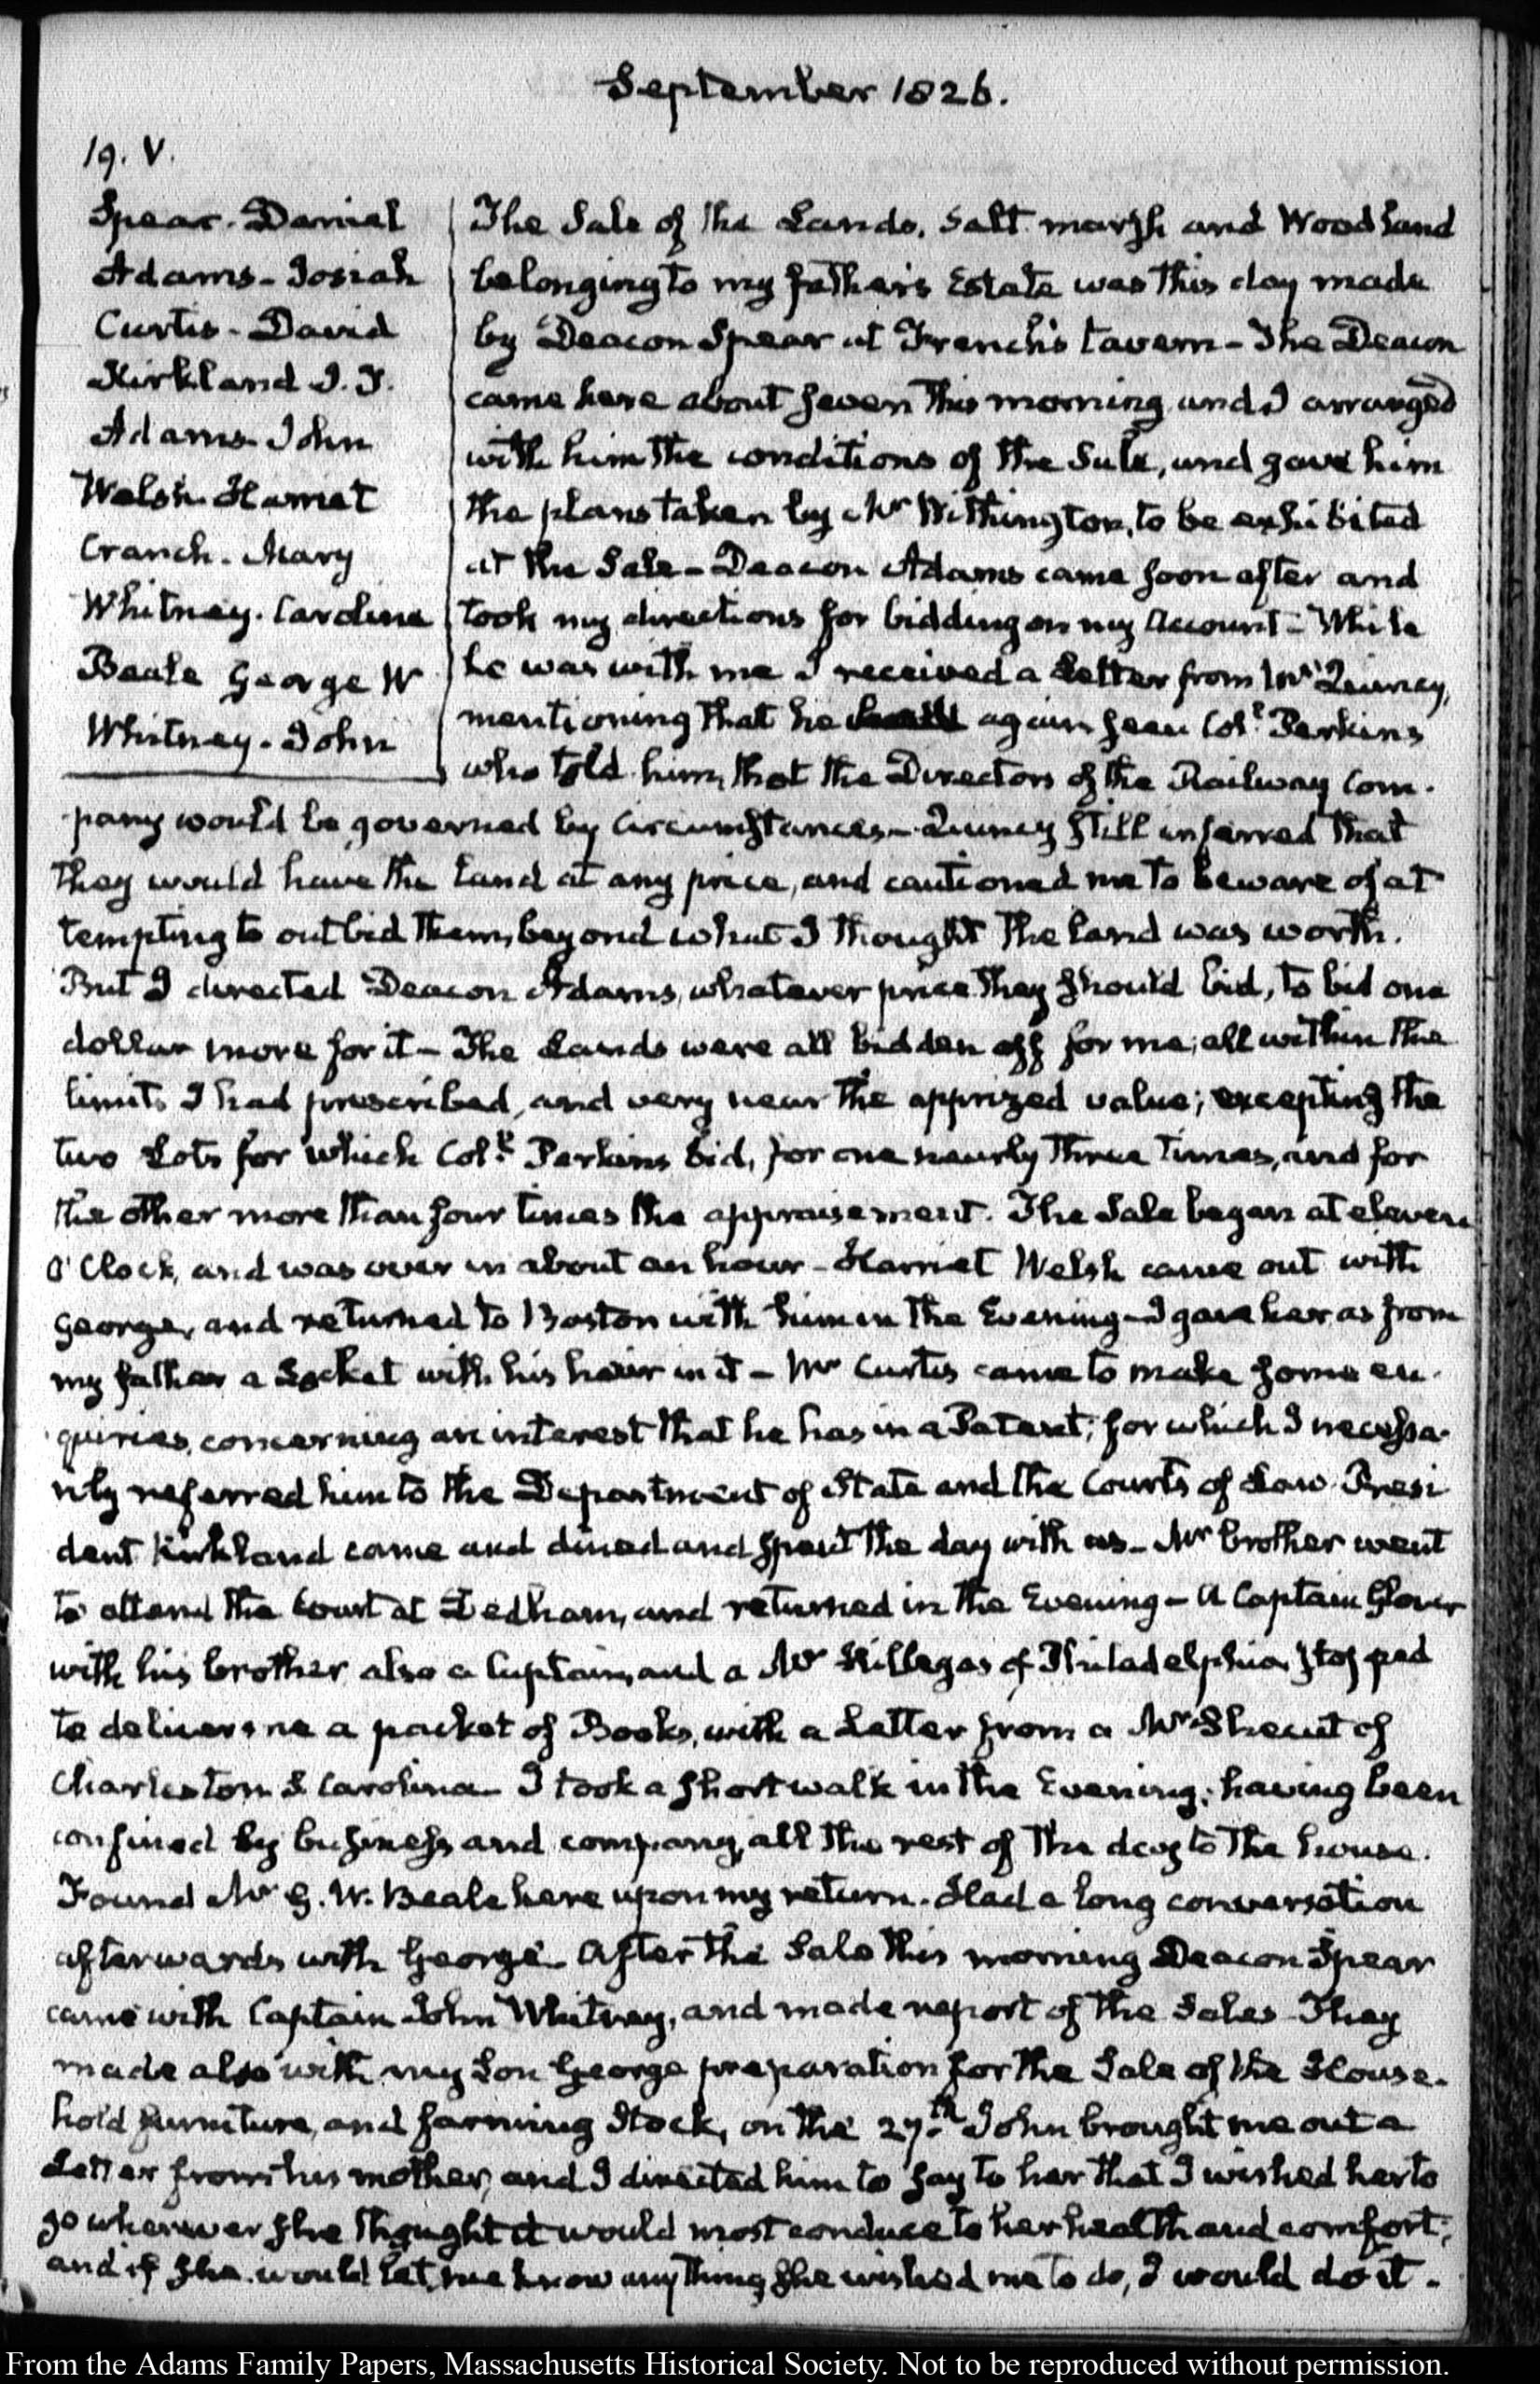 September 1826.
19. V.
Spear. Daniel
Adams - Josiah
Curtis - David
Kirkland J. T.
Adams John
Welsh. Harriet
Cranch. Mary
Whitney. Caroline
Beale George W
Whitney. John
The Sale of the Lands, Salt marsh and Woodland
belonging to my father's Estate was this day made
by Deacon Spear at French's tavern - The Deacon
came here about seven this morning and I arranged
with him the conditions of the Sale, and gave him
the plans taken by Mr Withington, to be exhibited
at the Sale - Deacon Adams came soon after and
took my directions for bidding on my account - While
he was with me I received a Letter from Mr Quincy,
mentioning that he again seen Coll. Perkins
who told him, that the Directors of the Railway Com-
pany would be governed by circumstances - Quincy still inferred that
they would have the Land at any price, and cautioned me to beware of at
tempting to outbid them, beyond what I thought the Land was worth.
But I directed Deacon Adams, whatever price they should bid, to bid one
dollar more for it - The Lands were all bidden off for me; all within the
limits I had prescribed, and very near the apprized value; excepting the
two Lots for which Coll. Perkins bid, for one nearly three times, and for
the other more than four times the appraisement. The Sale began at eleven
O'Clock, and was over in about an hour - Harriet Welsh came out with
George, and returned to Boston with him in the Evening - I gave her as from
my father a Locket with his hair in it - Mr Curtis came to make some en-
quiries concerning an interest that he has in a Patent; for which I necessa-
rily referred him to the Department of State and the Courts of Law. Presi
dent Kirkland came and dined and spent the day with us - My brother went
to attend the Court at Dedham, and returned in the Evening - A Captain Glover
with his brother also a Captain, and a Mr Hillegas of Philadelphia stopped
to deliver me a packet of Books, with a Letter from a Mr Shecut of
Charleston S. Carolina - I took a short walk in the Evening; having been
confined by business and company, all the rest of the day to the house.
Found Mr G. W. Beale here upon my return. Had a long conversation
afterwards with George - After the Sale this morning Deacon Spear
came with Captain John Whitney, and made report of the Sales - They
made also with my Son George preparation for the Sale of the House-
hold furniture, and farming Stock, on the 27th. John brought me out a
Letter from his mother, and I directed him to say to her that I wished her to
go wherever she thought it would most conduce to her health and comfort;
and if she would let me know any thing she wished me to do, I would do it.
From the Adams Family Papers, Massachusetts Historical Society. Not to be reproduced without permission.